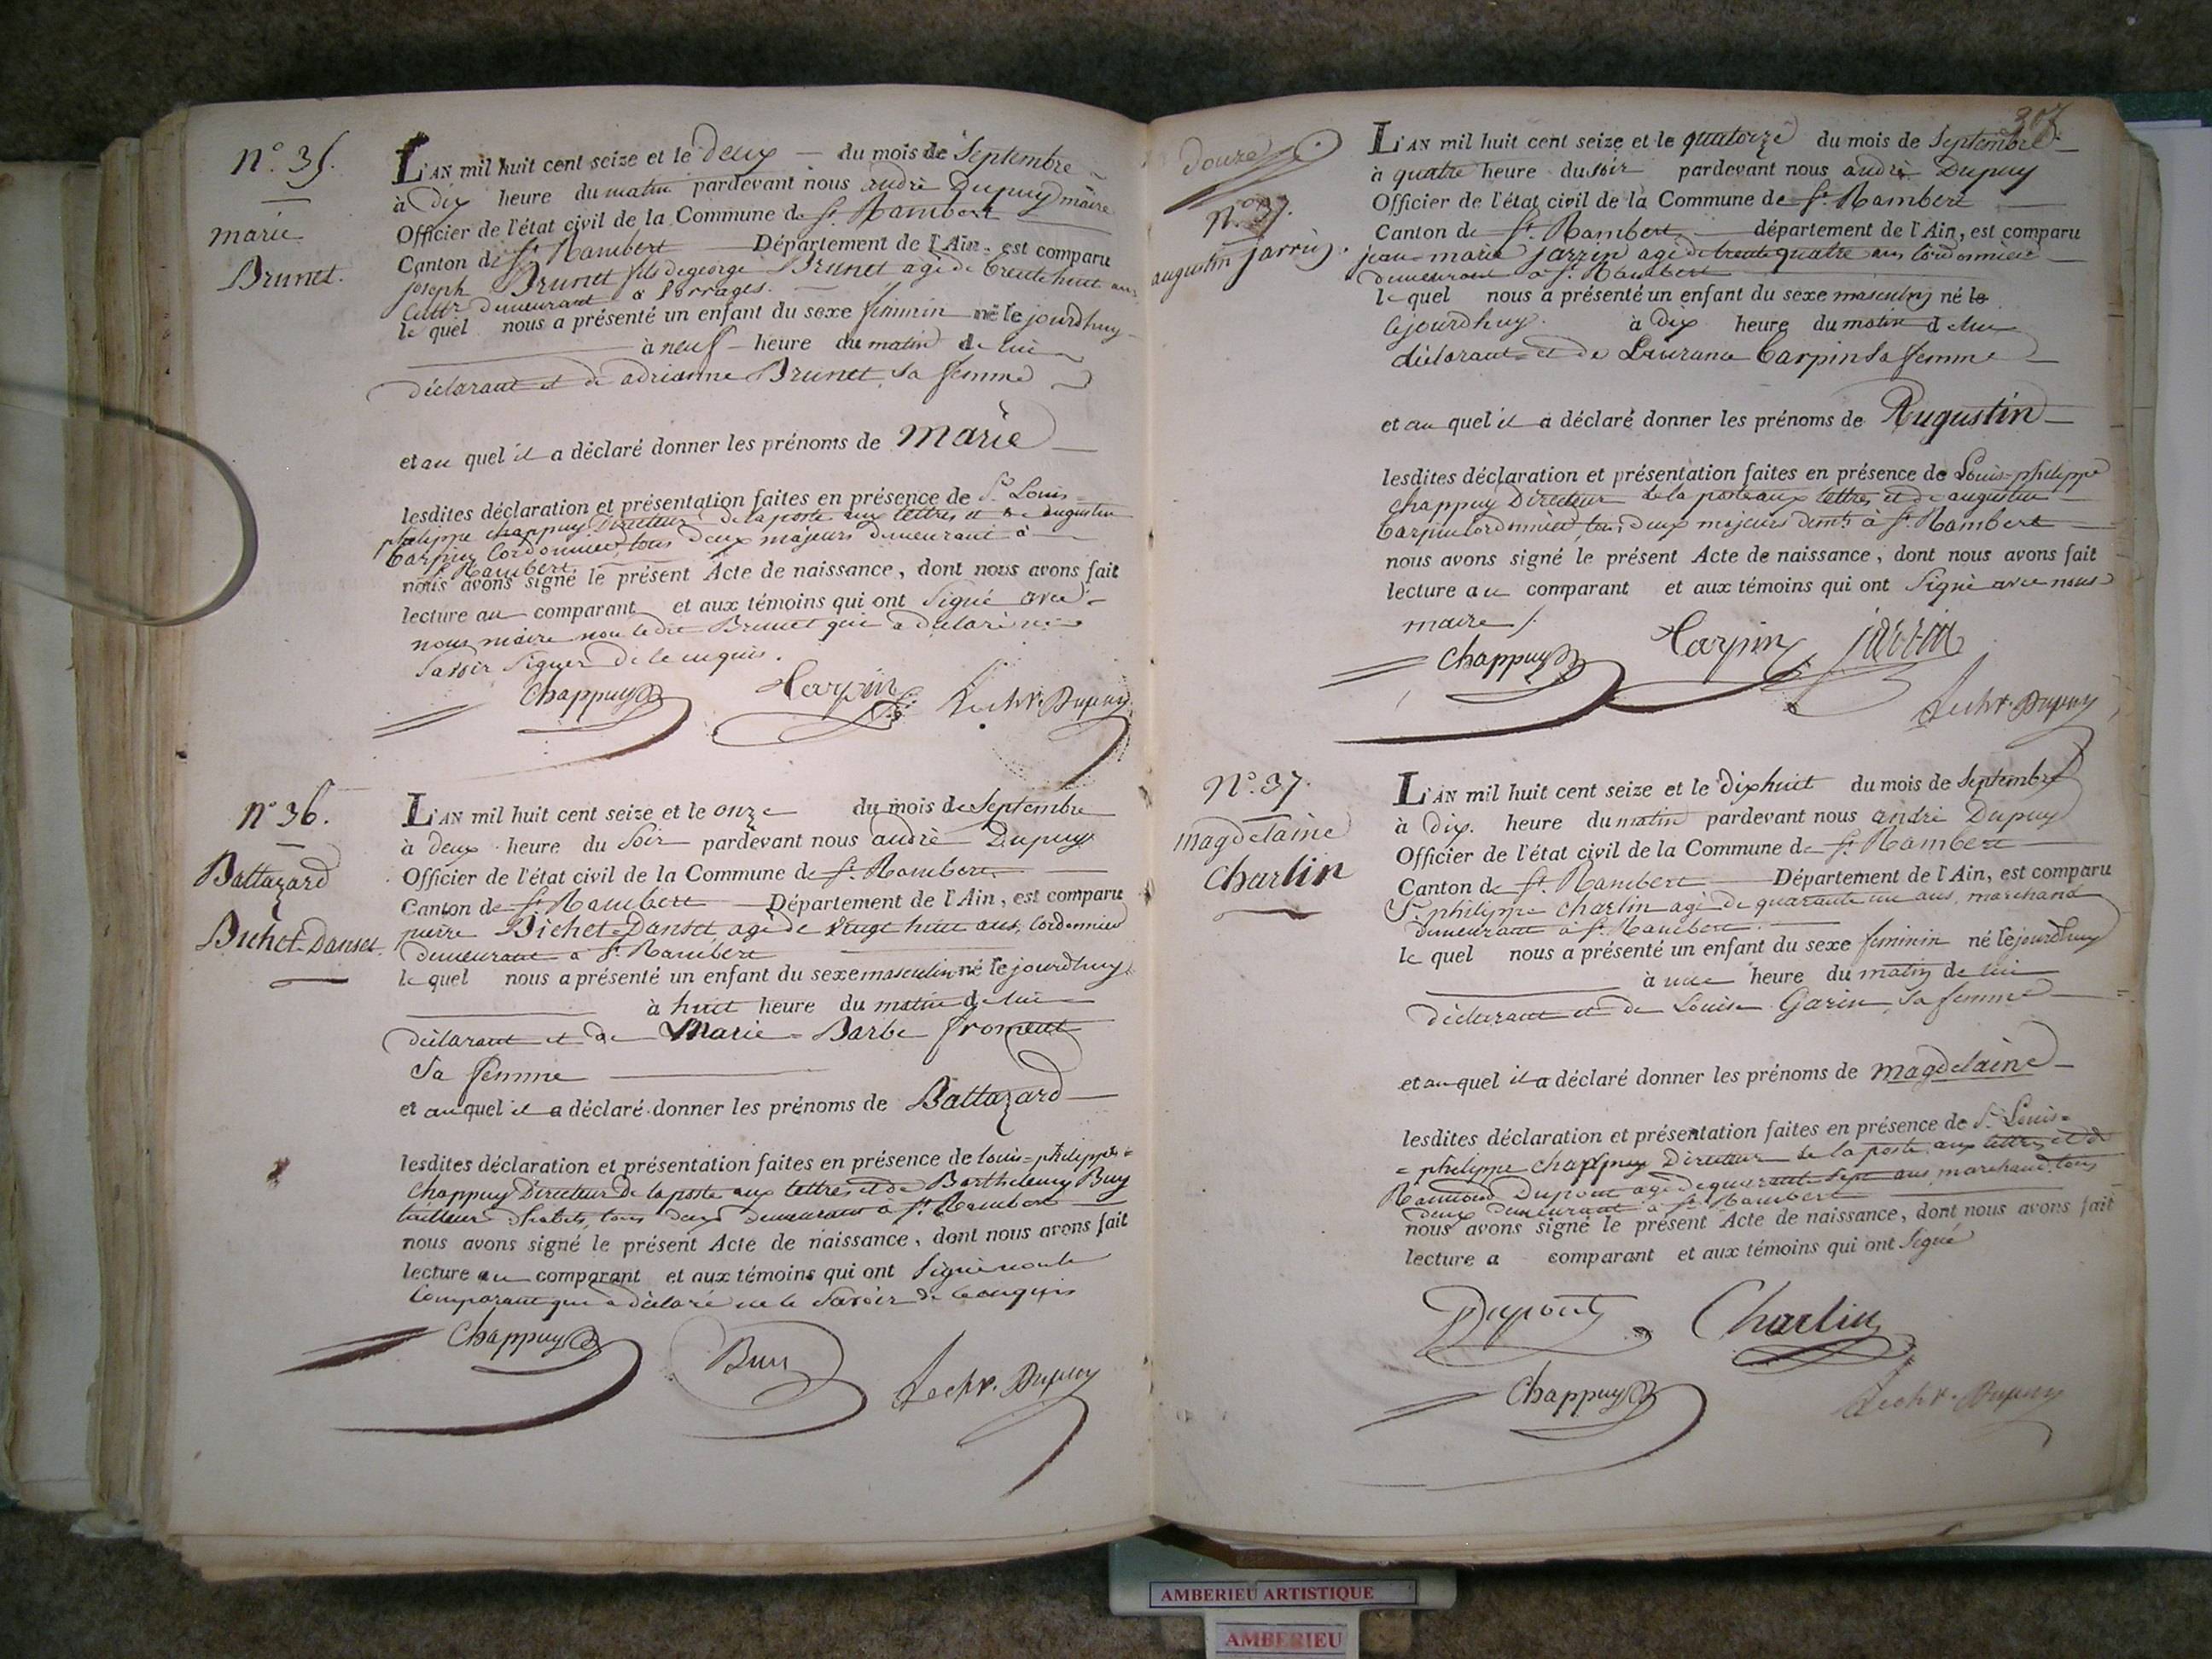 N.° 35.
marie
Brunet.
L'AN mil huit cent seize et le deux du mois de Septembre
à dix heure du matin pardevant nous andrè Dupuy maire
Officier de l'état civil de la Commune de St. Rambert
Canton de St. Rambert Département de l'Ain, est comparu
joseph Brunet fils de george Brunet agé de trente huit ans
cultr demeurant à Serrages.
le quel nous a présenté un enfant du sexe feminin né le jourdhuy
à neuf heure du matin de lui
déclarant et de adrianne Brunet sa femme
et au quel il a déclaré donner les prénoms de Marie
lesdites déclaration et présentation faites en présence de Sr. Louis
philippe chappuy Directeur de la poste aux lettres et de augustin
Carpin Cordonnier, tous deux majeurs demeurant à
St. Rambert
nous avons signé le présent Acte de naissance, dont nous avons fait
lecture au comparant et aux témoins qui ont signé avec
nous maire non ledit Brunet qui a déclaré ne
savoir signer de ce enquis.
Chappuy Carpin Dupuy
N° 36.
Baltazard
Bichet-Danset.
L'AN mil huit cent seize et le onze du mois de Septembre
à deux heure du soir pardevant nous andrè Dupuy
Officier de l'état civil de la Commune de St. Rambert
Canton de St. Rambert Département de l'Ain, est comparu
pierre Bichet-Danset agé de vingt huit ans, Cordonnier
demeurant à St. Rambert
le quel nous a présenté un enfant du sexe masculin né le jourdhuy
à huit heure du matin de lui
déclarant et de Marie-Barbe froment
sa femme
et au quel il a déclaré donner les prénoms de Baltazard
lesdites déclaration et présentation faites en présence de louis=philippe=
Chappuy Directeur de la poste aux lettres et de Barthelemy Buy
tailleur d'habits, tous deux demeurant à St. Rambert
nous avons signé le présent Acte de naissance, dont nous avons fait
lecture au comparant et aux témoins qui ont signé non le
Comparant qui a déclaré ne le savoir de ce enquis
Chappuy Buy Dupuy
307
douze
N.° 37.
augustin jarrin.
L'AN mil huit cent seize et le quatorze du mois de Septembre
à quatre heure du soir pardevant nous andrè Dupuy
Officier de l'état civil de la Commune de St. Rambert
Canton de St. Rambert département de l'Ain, est comparu
jean-marie jarrin agé de trente quatre ans Cordonnier
demeurant à St. Rambert
le quel nous a présenté un enfant du sexe masculin né le
lejourdhuy. à dix heure du matin de lui
déclarant et de Laurance Carpin sa femme
et au quel il a déclaré donner les prénoms de Augustin
lesdites déclaration et présentation faites en présence de Louis=philippe
chappuy Directeur de la poste aux lettres et de augustin
Carpin Cordonnier, tous deux majeurs demts à St. Rambert
nous avons signé le présent Acte de naissance, dont nous avons fait
lecture au comparant et aux témoins qui ont signé avec nous
maire /.
Chappuy Carpin jarrin
Dupuy
N.° 37.
magdelaine
Charlin
L'AN mil huit cent seize et le dixhuit du mois de Septembre
à dix. heure du matin pardevant nous andrè Dupuy
Officier de l'état civil de la Commune de St. Rambert
Canton de St. Rambert Département de l'Ain, est comparu
Sr. philippe Charlin agé de quarante un ans, marchand
demeurant à St. Rambert.
le quel nous a présenté un enfant du sexe feminin né lejourdhuy
à une heure du matin de lui
déclarant et de Louise Garin sa femme
et au quel il a déclaré donner les prénoms de magdelaine
lesdites déclaration et présentation faites en présence de Sr. Louis=
=philippe chappuy Directeur de la poste aux lettres et de
Raimond Dupont agé de quarante sept ans marchand, tous
deux demeurant à St. Rambert
nous avons signé le présent Acte de naissance, dont nous avons fait
lecture a comparant et aux témoins qui ont signé
Dupont Charlin
Chappuy Dupuy
AMBERIEU ARTISTIQUE
AMBERIEU